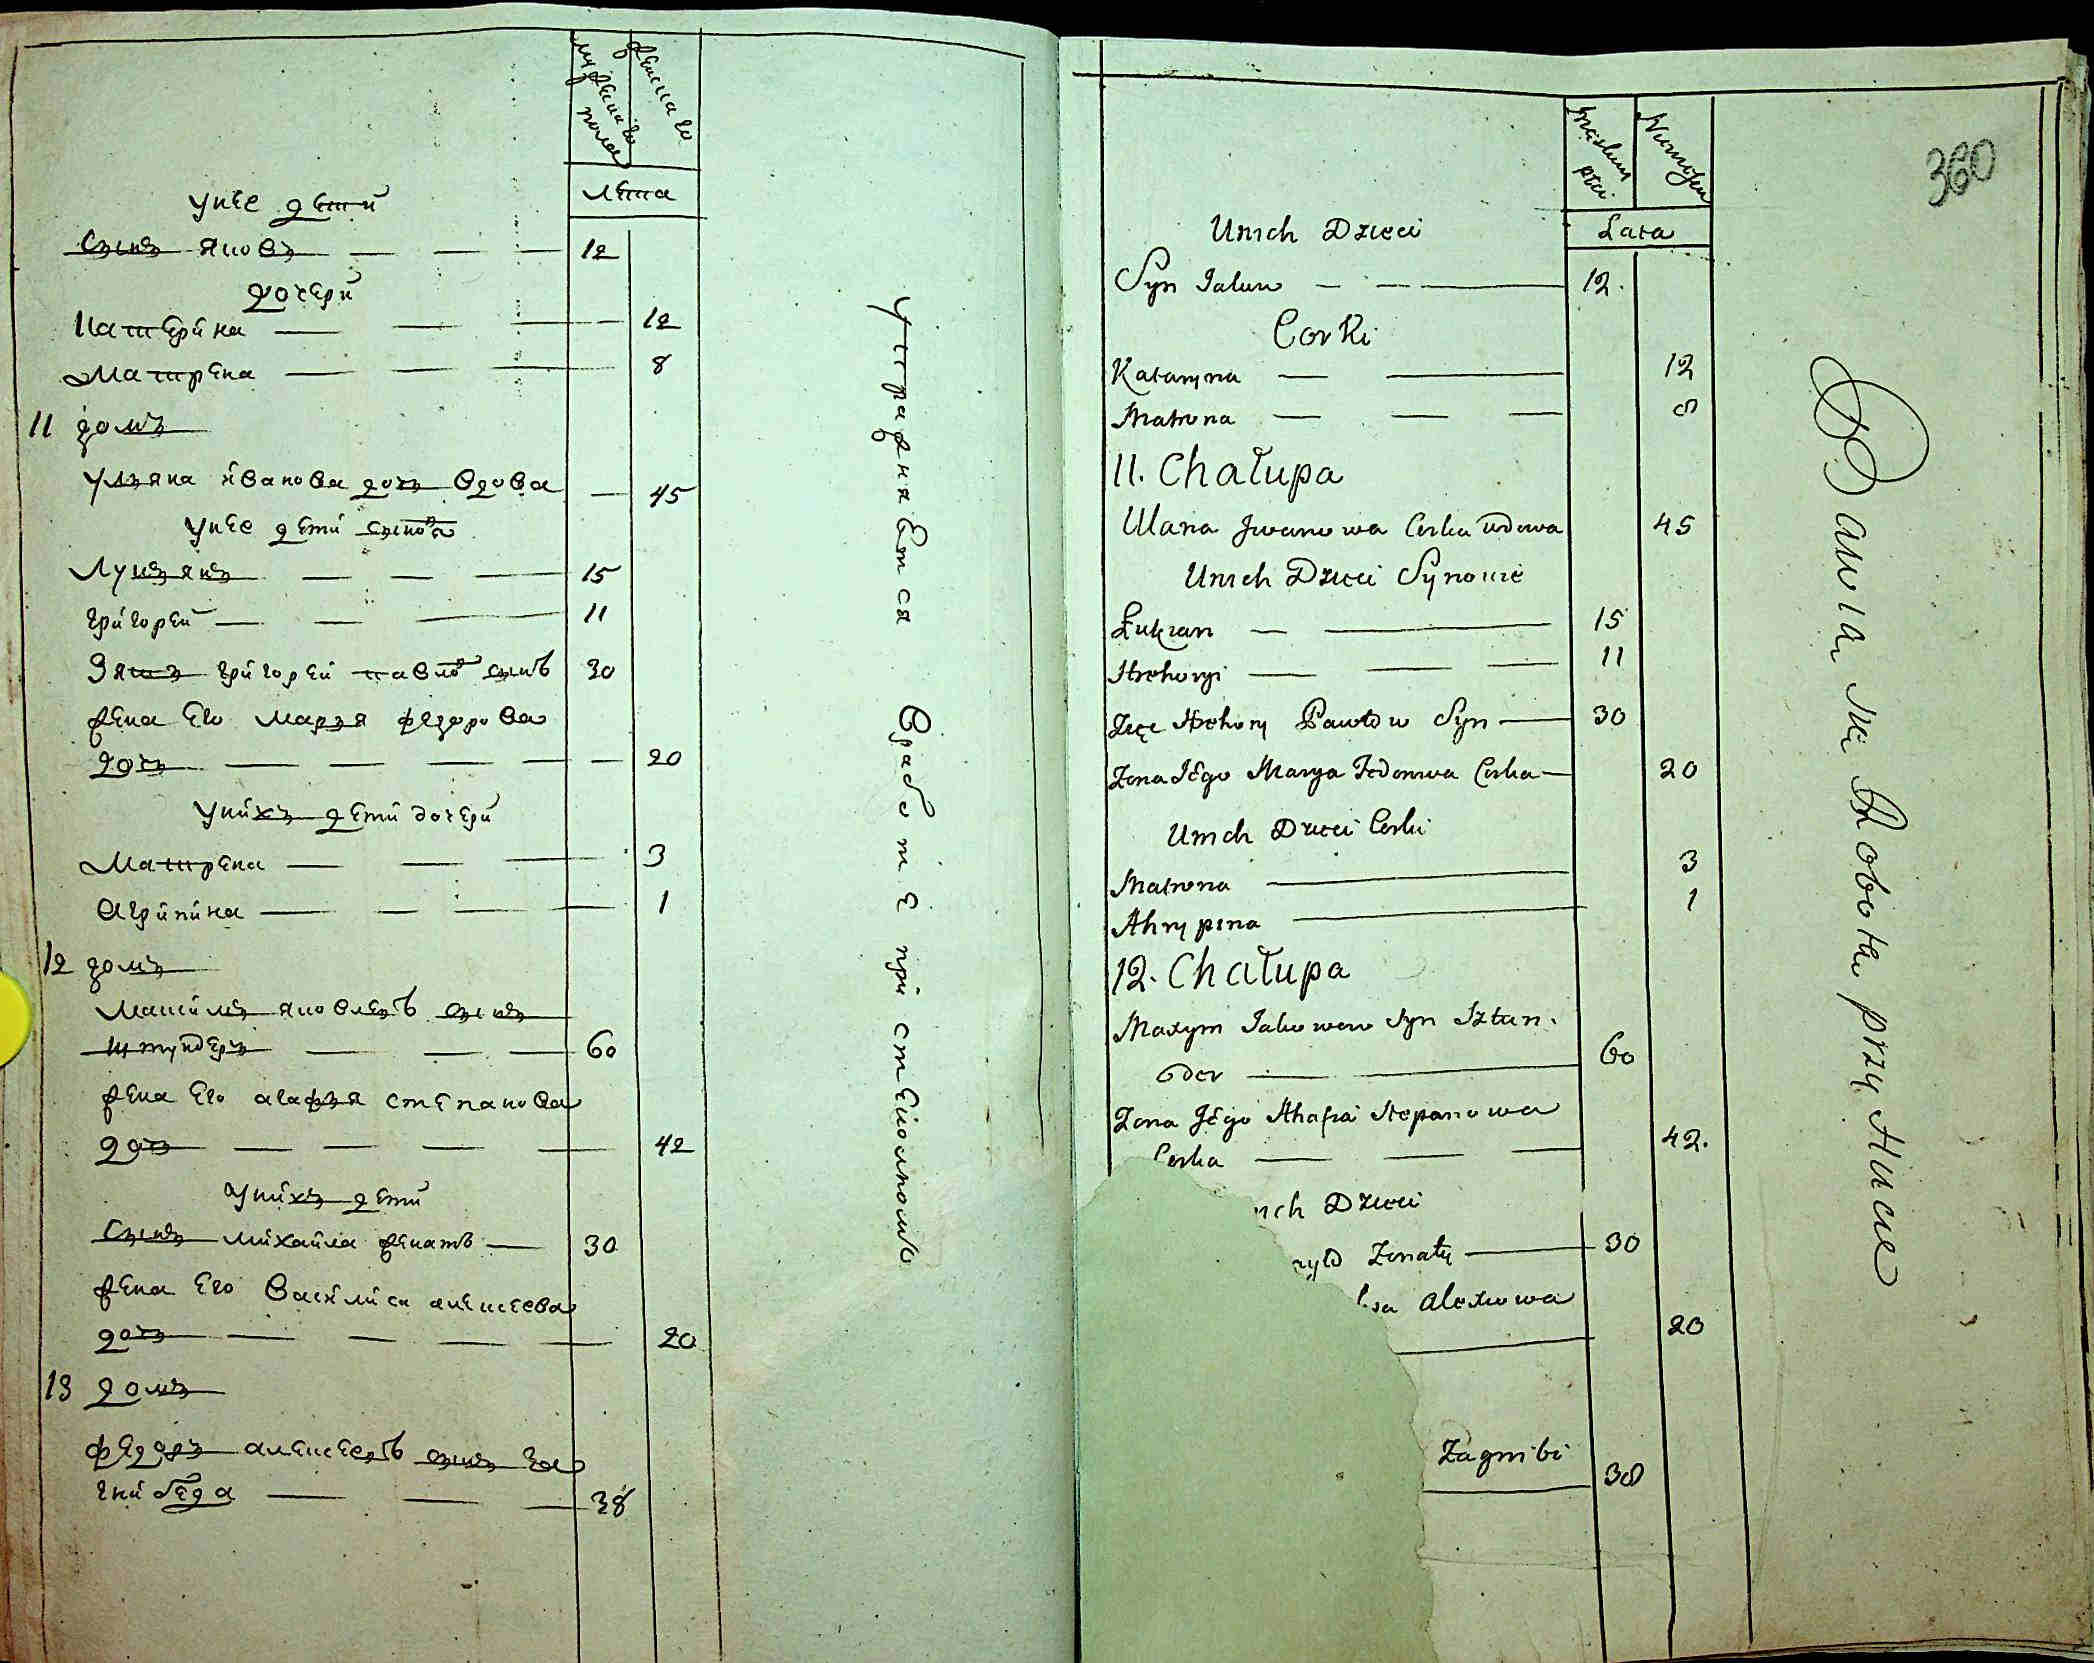 мужеска го пола
женска го
лѣта
у нее дети
сынъ яковъ 12
дочери
катерина 12
матрена 8
11 домъ
ульяна иванова дочь вдова 45
у нее дети сынова
лукьянъ 15
григорей 11
Зять григорей павловъ сынъ 30
жена его марья федорова
дочь 20
у нихъ дети дочери
матрена 3
агрипина 1
12 домъ
максимъ яковлевъ сынъ
штундеръ 60
жена его агафья степанова
дочь 42
у нихъ дети
сынъ михайла женатъ 30
жена его василиса алексеева
дочь 20
13 домъ
федоръ алексеевъ сынъ за
гнибеда 38
упражняется в работе при стеколномъ
360
Męskiey płci
Lata
Unich Dzieci
Syn Jakow 12.
Corki
Kataryna 12
Matrona 8
11. Chałupa
Ulana Jwanowa Corka wdowa 45
Unich Dzieci Synowie
Łukian 15
Hrehory 11
Zięć Hrehory Pawłow Syn 30
Zona Jego Marya Fedorowa Corka 20
Unich Dzieci Corki
Matrona 3
Ahrypina 1
12. Chałupa
Maxym Jakowow Syn Sztun.
der 60
Zona Jego Ahafia Stepanowa
Corka 42.
nich Dzieci
Zonaty 30
Alexiowa
20
Zagnibi
38
Bawia sie Robotą przy Hucie